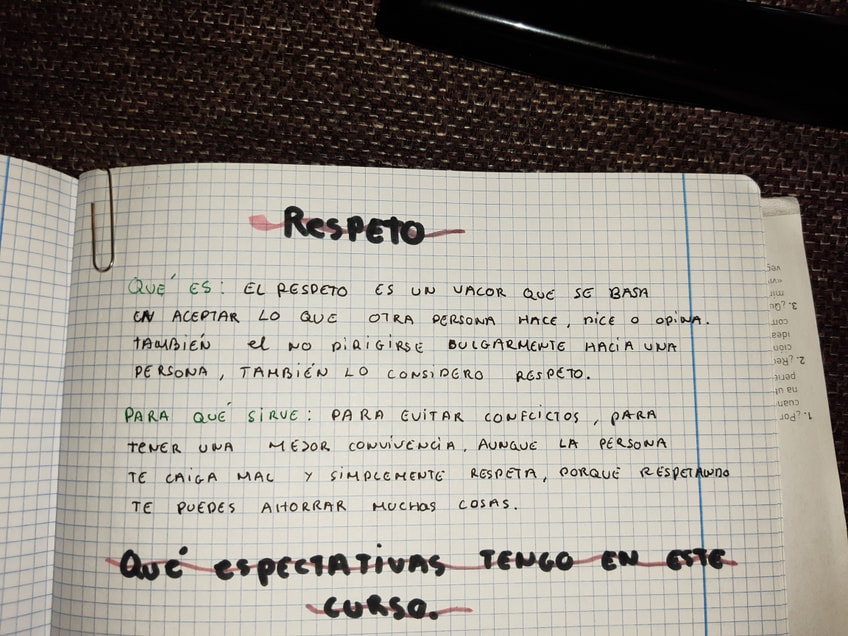 RESPETO
QUÉ ES: EL RESPETO ES UN VALOR QUE SE BASA
EN ACEPTAR LO QUE OTRA PERSONA HACE, DICE O OPINA.
TAMBIÉN El NO DIRIGIRSE BULGARMENTE HACIA UNA
PERSONA, TAMBIÉN LO CONSIDERO RESPETO.
PARA QUÉ SIRVE: PARA EVITAR CONFLICTOS, PARA
TENER UNA MEJOR CONVIVENCIA. AUNQUE LA PERSONA
TE CAIGA MAL Y SIMPLEMENTE RESPETA, PORQUE RESPETANDO
TE PUEDES AHORRAR MUCHAS COSAS.
QUÉ ESPECTATIVAS TENGO EN ESTE
CURSO.
1. ¿Por
cuan
na ut
perie
2. ¿Rec
ción
idea
com
3. ¿Qu
mir